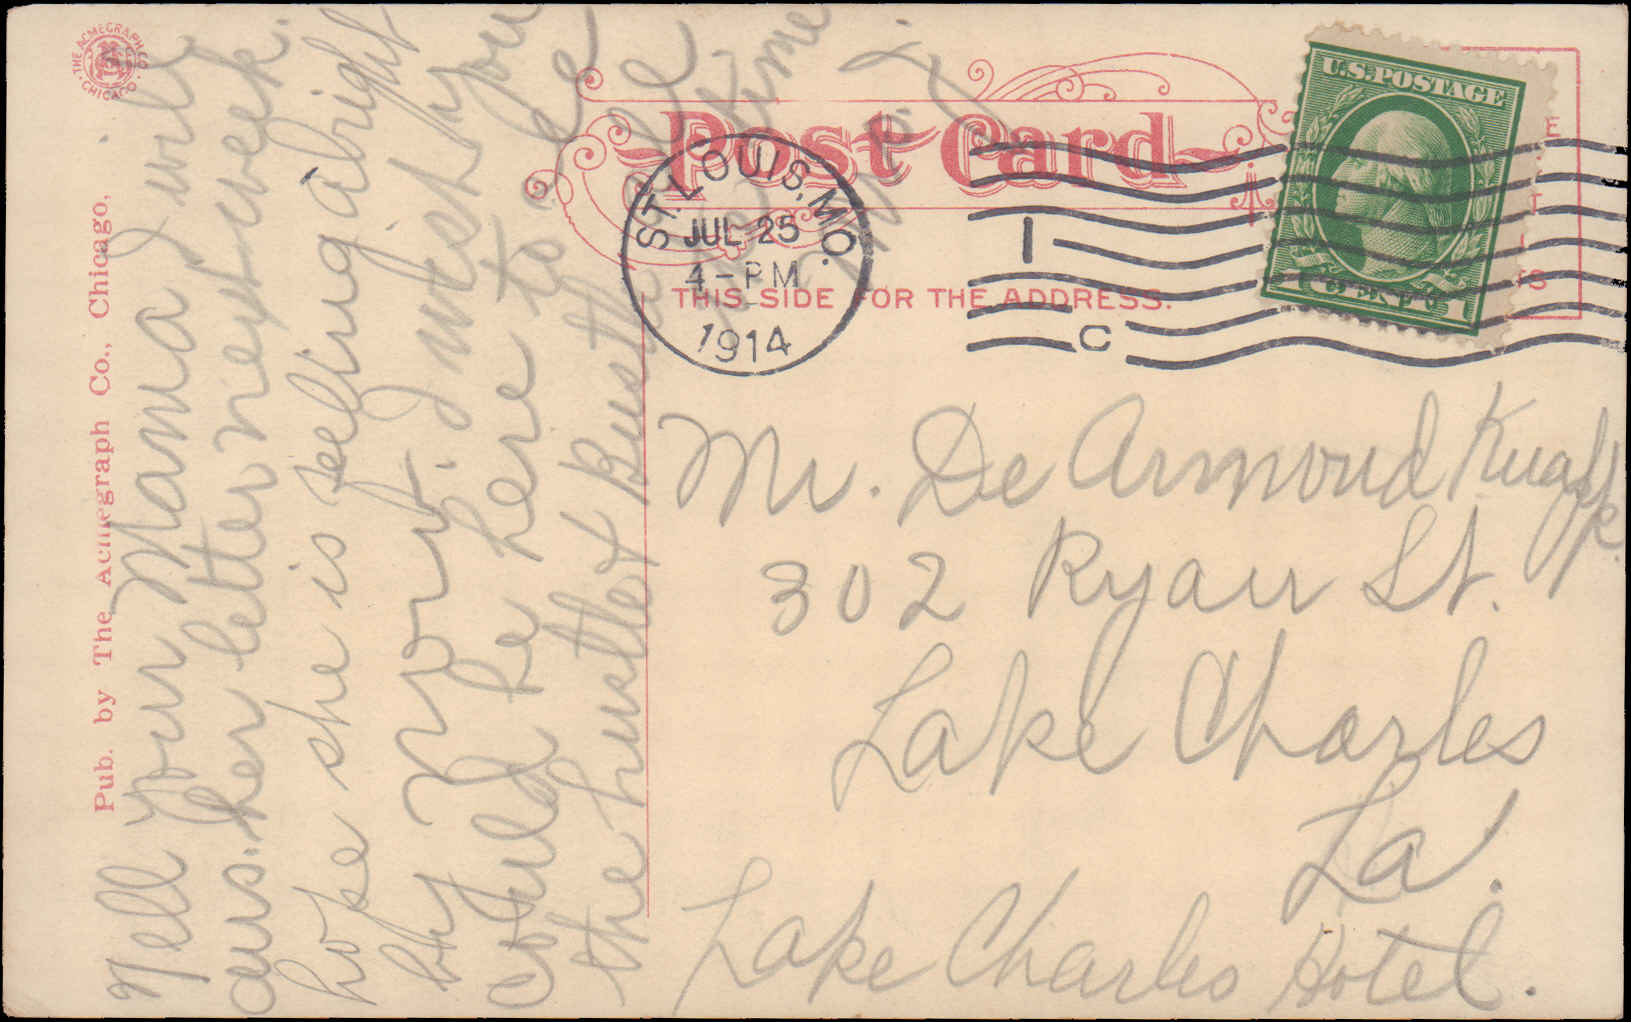 THE ACMEGRAPH CO.
CHICAGO
Pub. by The Acmegraph Co., Chicago.
Post Card
THIS SIDE FOR THE ADDRESS.
ST. LOUIS, MO.
JUL 25
4-PM
1914
1
C
U.S. POSTAGE
1 CENT 1
Tell your Mama I will
ans. her letter next week.
hope she is feeling alright
by now. I wish you
could be here to see
the hustle & Bustle
time
Mr. De Armond Knapp.
302 Ryan St.
Lake Charles
La.
Lake Charles Hotel.